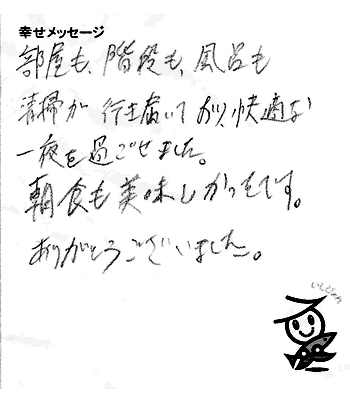 幸せメッセージ
部屋も、階段も、風呂も
清掃が行き届いており、快適な
一夜を過ごせました。
朝食も美味しかったです。
ありがとうございました。